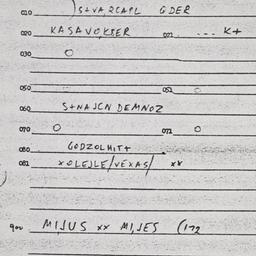 010
020 KASAVOKTER 021 --- K+
030 O
050 051 O
060 S+NAJCN DEMNOZ
070 O 071 O
080 GODZOLMIT+
081 XOLEJLE/VEXAS/ xx
900 MIJUS xx MIJES (172